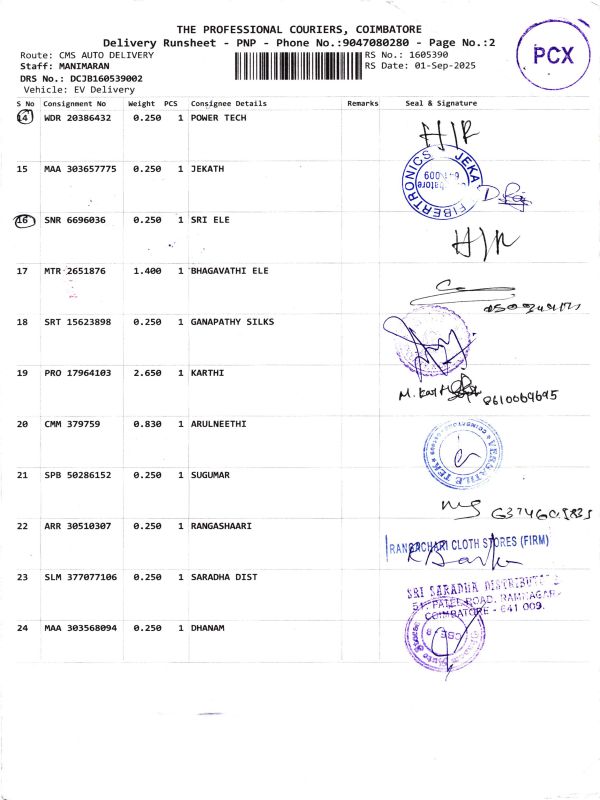 THE PROFESSIONAL COURIERS, COIMBATORE
Delivery Runsheet - PNP - Phone No.:9047080280 - Page No.:2
Route: CMS AUTO DELIVERY RS No.: 1605390
Staff: MANIMARAN RS Date: 01-Sep-2025
DRS No.: DCJB160539002
Vehicle: EV Delivery
PCX
S No Consignment No Weight PCS Consignee Details Remarks Seal & Signature
14 WDR 20386432 0.250 1 POWER TECH
H/R
15 MAA 303657775 0.250 1 JEKATH
FIBERTRONICS JEKA
16 SNR 6696036 0.250 1 SRI ELE
H/R
17 MTR 2651876 1.400 1 BHAGAVATHI ELE
18 SRT 15623898 0.250 1 GANAPATHY SILKS
19 PRO 17964103 2.650 1 KARTHI
8610069695
20 CMM 379759 0.830 1 ARULNEETHI
VERSATILE TEK
21 SPB 50286152 0.250 1 SUGUMAR
22 ARR 30510307 0.250 1 RANGASHAARI
RANGACHARI CLOTH STORES (FIRM)
23 SLM 377077106 0.250 1 SARADHA DIST
SRI SARADHA
51, PATEL ROAD, RAMNAGAR
COIMBATORE - 641 009.
24 MAA 303568094 0.250 1 DHANAM